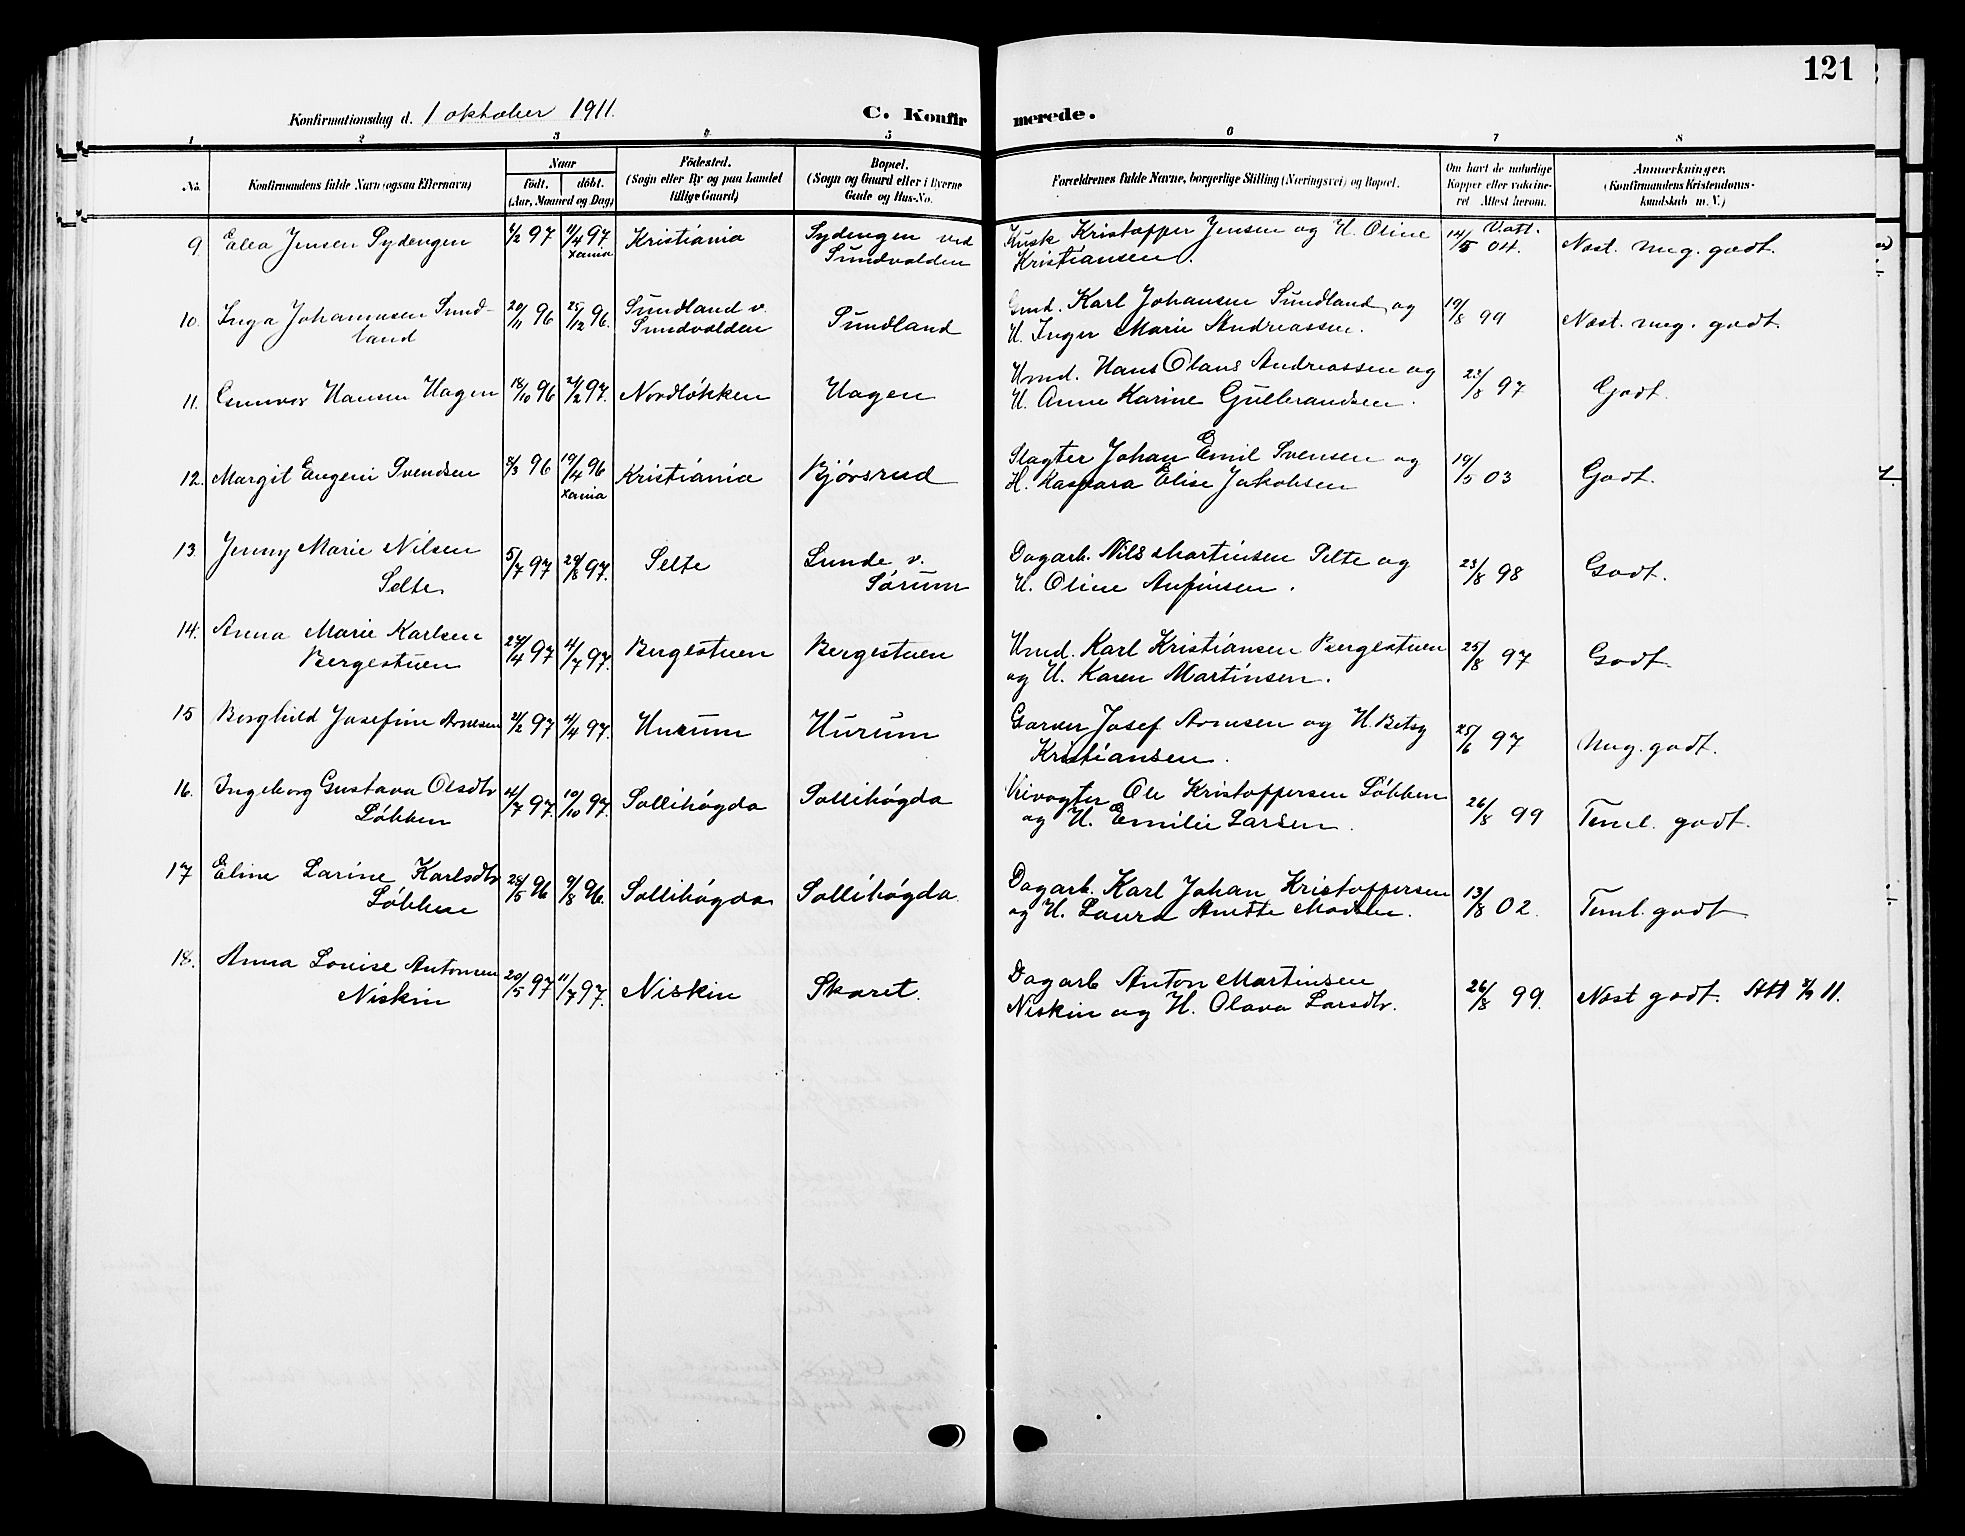 121
Konfirmationsdag d. 1 oktober 1911.
C. Konfirmerede.
1 2 3 4 5 6 7 8
No.
Konfirmandens fulde Navn (ogsaa Efternavn)
Naar
födt, döbt.
(Aar, Maaned og Dag)
Födested.
(Sogn eller By og paa Landet
tillige Gaard)
Bopæl.
(Sogn og Gaard eller i Byerne
Gade og Hus-No.
Forældrenes fulde Navne, borgerlige Stilling (Næringsvei) og Bopæl.
Om havt de naturlige
Kopper eller vakcine-
ret Attest herom.
Anmærkninger.
(Konfirmandens Kristendoms-
kundskab m. V.)
9 Jensen Sydengen 1/2 97 11/4 97. Kristiania Sydengen ved Kusk Kristoffer Jensen og H. Oline 14/5 04. Næst. meg. godt.
Xania Sundvolden Kristiansen.
10. Inga Johannesen Sund- 20/11 96 25/12 96. Sundland v. Sundland Gmd. Karl Johansen Sundland og 19/8 99 Næst. meg. godt.
land Sundvolden H. Inger Marie Andreassen.
11. Hansen Hagen 18/10 96 21/2 97. Nordløkken Hagen Hmd. Hans Olaus Andreassen og 23/8 97 Godt.
H. Anne Karine Gulbrandsen.
12. Margit Eugeni Svendsen 8/3 96 19/4 96 Kristiania Bjørsrud Slagter Johan Emil Svensen og 19/5 03 Godt.
Xania H. Kaspara Elise Jakobsen
13. Jenny Marie Nilsen 5/7 97 29/8 97. Selte Lunde v. Dagarb. Nils Martinsen Selte og 23/8 98 Godt.
Selte. Sørum H. Oline Anfinsen.
14. Anna Marie Karlsen 27/4 97 11/7 97. Bergestuen Bergestuen Hmd. Karl Kristiansen Bergestuen 25/8 97 Godt.
Bergestuen og H. Karen Martinsen.
15 Borghild Josefine Arnesen 21/2 97 11/4 97. Hurum Hurum Garver Josef Arnesen og H. Betsy 25/6 97 Meg. godt.
Kristiansen.
16. Ingeborg Gustava Olsdtr 14/7 97. 10/10 97. Sollihøgda Sollihøgda Veivogter Ole Kristoffersen Løkken 26/8 99 Teml. godt.
Løkken og H. Emilie Larsen.
17 Eline Larine Karlsdtr 28/5 96 9/8 96. Sollihøgda Sollihøgda. Dagarb. Karl Johan Kristoffersen 13/8 02. Teml. godt
Løkken og H. Laura Anette Madsen.
18. Anna Louise Antonsen 20/5 97 11/7 97. Niskin Skaret. Dagarb Anton Martinsen 26/8 99. Næst godt. Att 11.
Niskin Niskin og H. Olava Larsdtr.